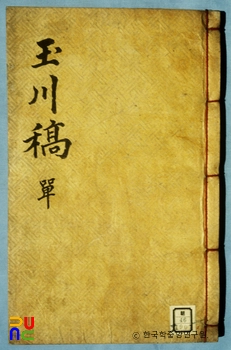 玉川稿
單
ⓒ 한국학중앙연구원